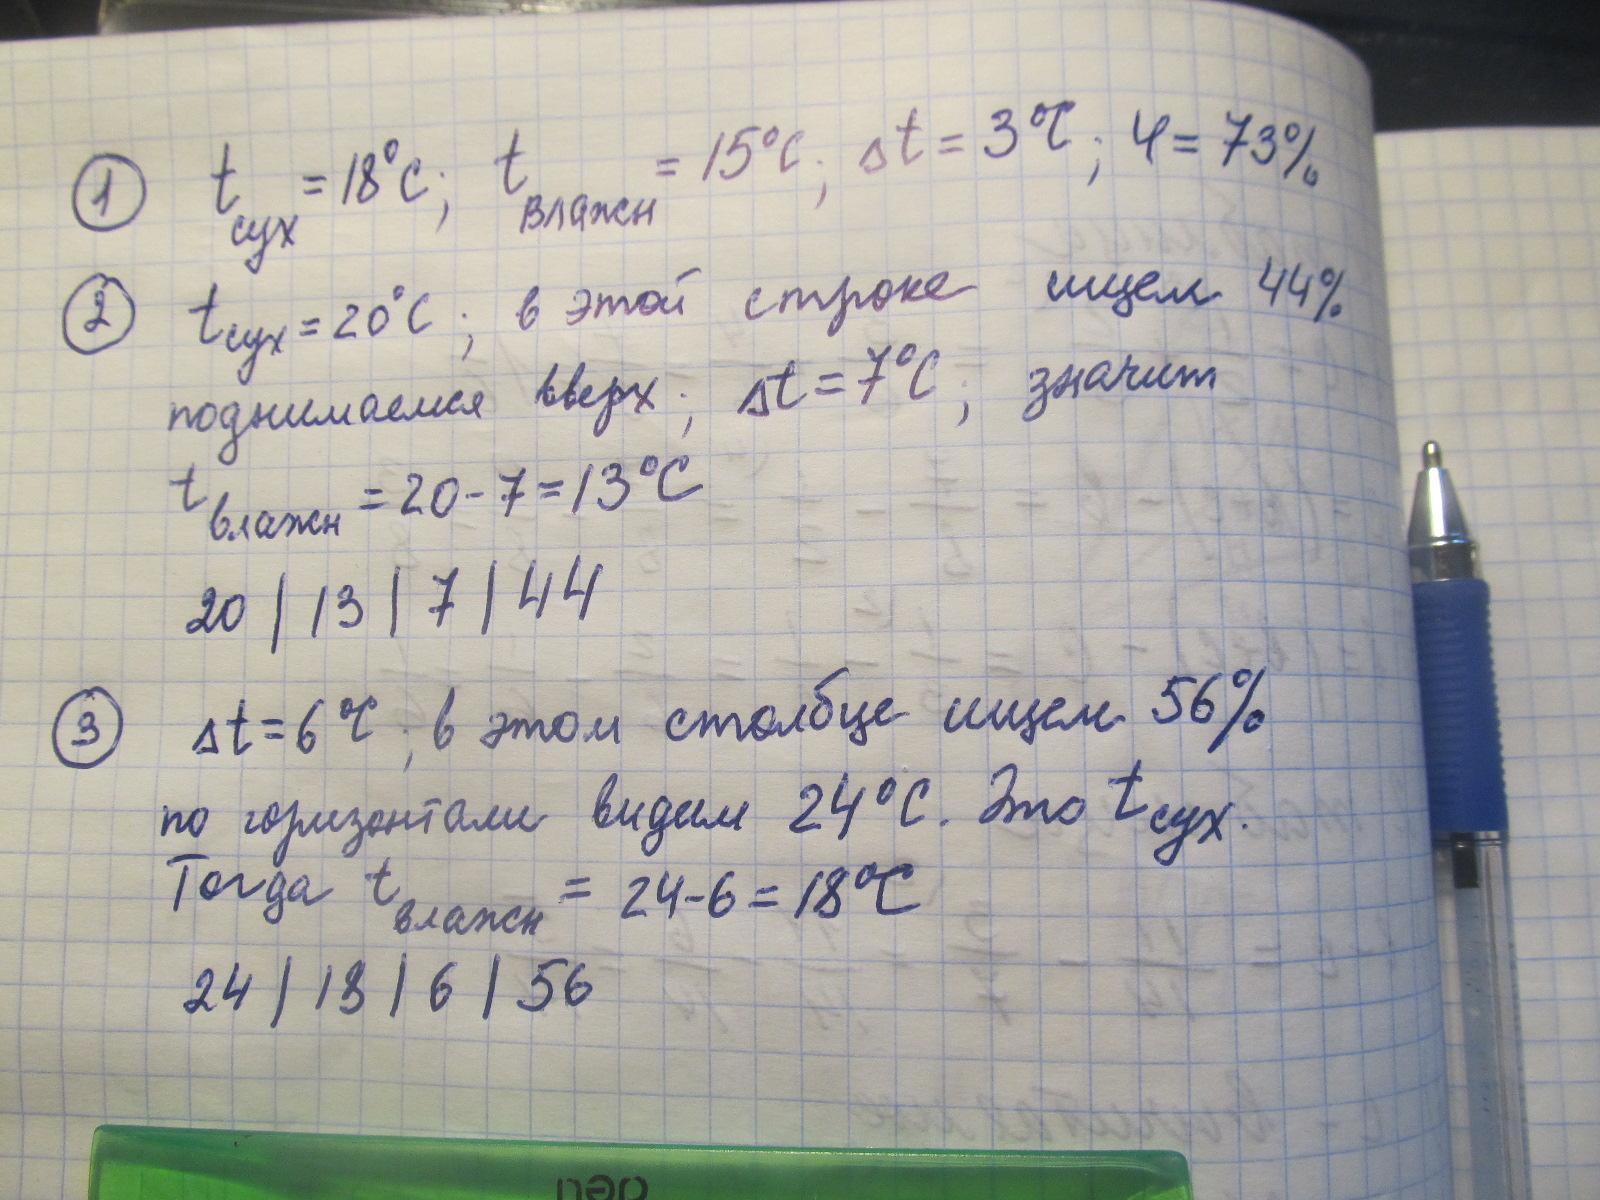 ① tсух = 18°C; tвлажн = 15°C; Δt = 3°C; φ = 73%
② tсух = 20°C; в этой строке ищем 44%
поднимаемся вверх; Δt = 7°C; значит
tвлажн = 20 - 7 = 13°C
20 | 13 | 7 | 44
③ Δt = 6°C; в этом столбце ищем 56%
по горизонтали видим 24°C. Это tсух.
Тогда tвлажн = 24 - 6 = 18°C
24 | 18 | 6 | 56
deli